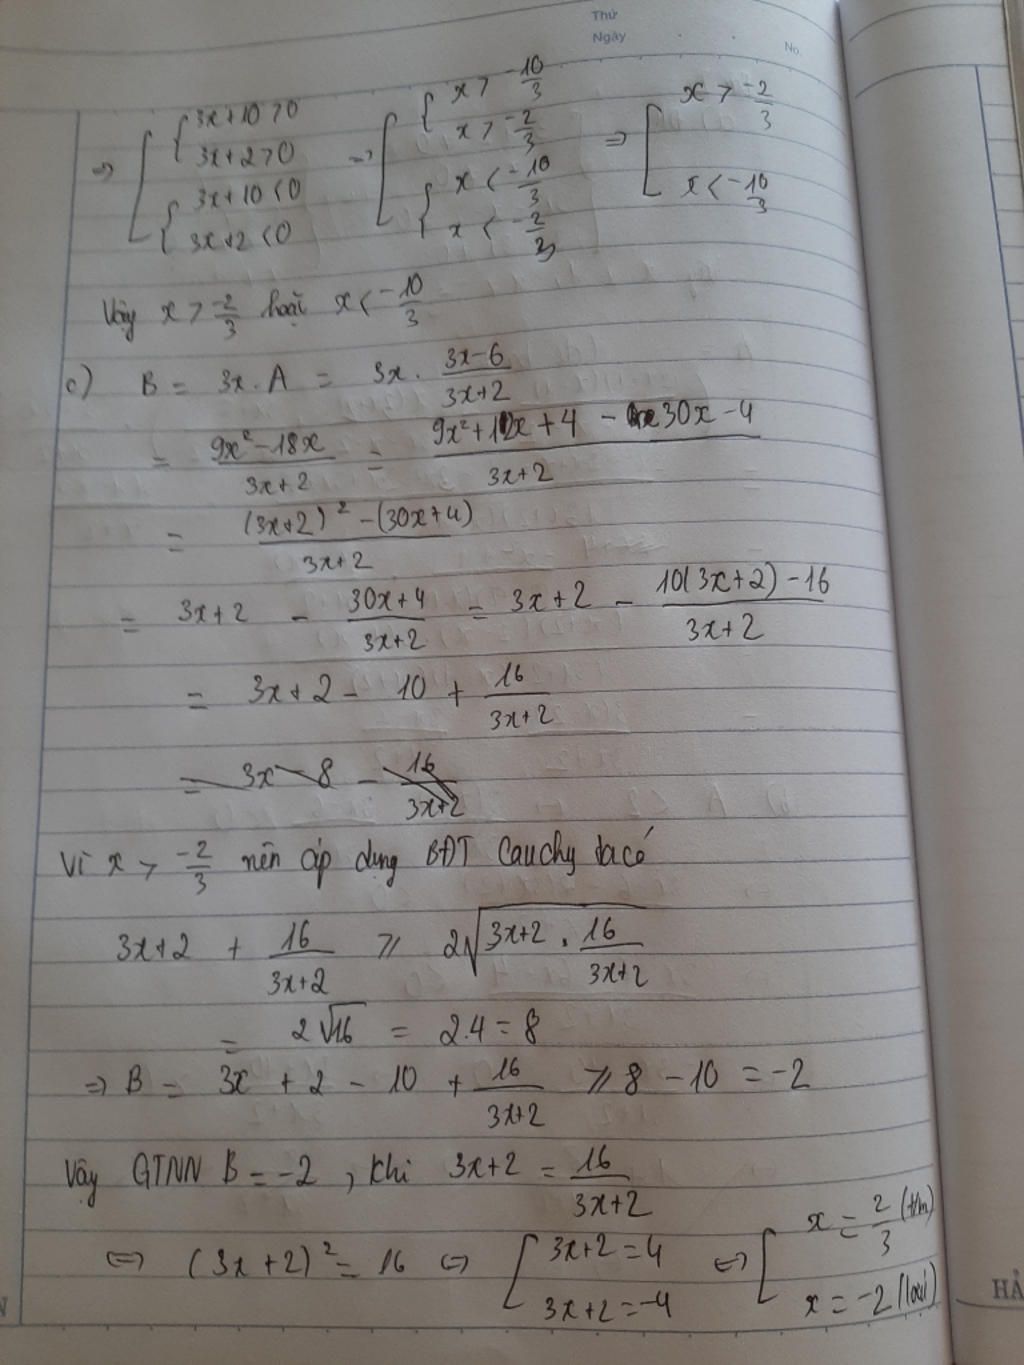 Thứ
Ngày
No.
=> [ { 3x+10 > 0 ; 3x+2 > 0 ; { 3x+10 < 0 ; 3x+2 < 0 => [ { x > -10/3 ; x > -2/3 ; { x < -10/3 ; x < -2/3 => [ x > -2/3 ; x < -10/3
Vậy x > -2/3 hoặc x < -10/3
c) B = 3x . A = 3x . (3x-6)/(3x+2)
= (9x² - 18x)/(3x+2) = (9x² + 12x + 4 - 30x - 4)/(3x+2)
= ((3x+2)² - (30x+4))/(3x+2)
= 3x+2 - (30x+4)/(3x+2) = 3x+2 - (10(3x+2) - 16)/(3x+2)
= 3x+2 - 10 + 16/(3x+2)
= 3x - 8 - 16/(3x+2)
Vì x > -2/3 nên áp dụng BĐT Cauchy ta có
3x+2 + 16/(3x+2) ⩾ 2√(3x+2 . 16/(3x+2))
= 2√16 = 2.4 = 8
=> B = 3x + 2 - 10 + 16/(3x+2) ⩾ 8 - 10 = -2
Vậy GTNN B = -2, khi 3x+2 = 16/(3x+2)
<=> (3x+2)² = 16 <=> [ 3x+2 = 4 ; 3x+2 = -4 <=> [ x = 2/3 (t/m) ; x = -2 (loại)
HẢ